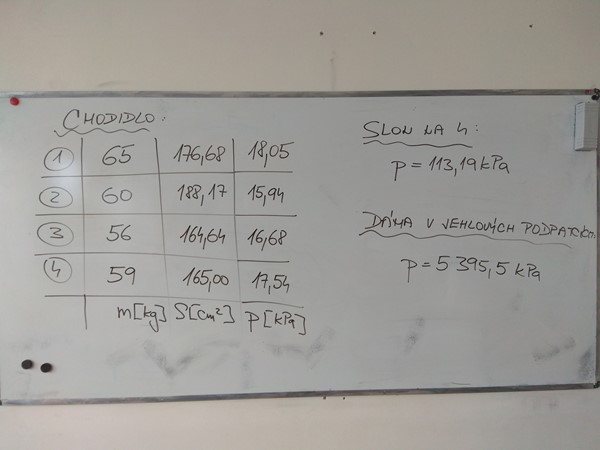 CHODIDLO:
1 65 176,68 18,05
2 60 188,17 15,94
3 56 164,64 16,68
4 59 165,00 17,54
m[kg] S[cm²] p[kPa]
SLON NA 4:
p = 113,19 kPa
DÁMA V JEHLOVÝCH PODPATCÍCH:
p = 5 395,5 kPa